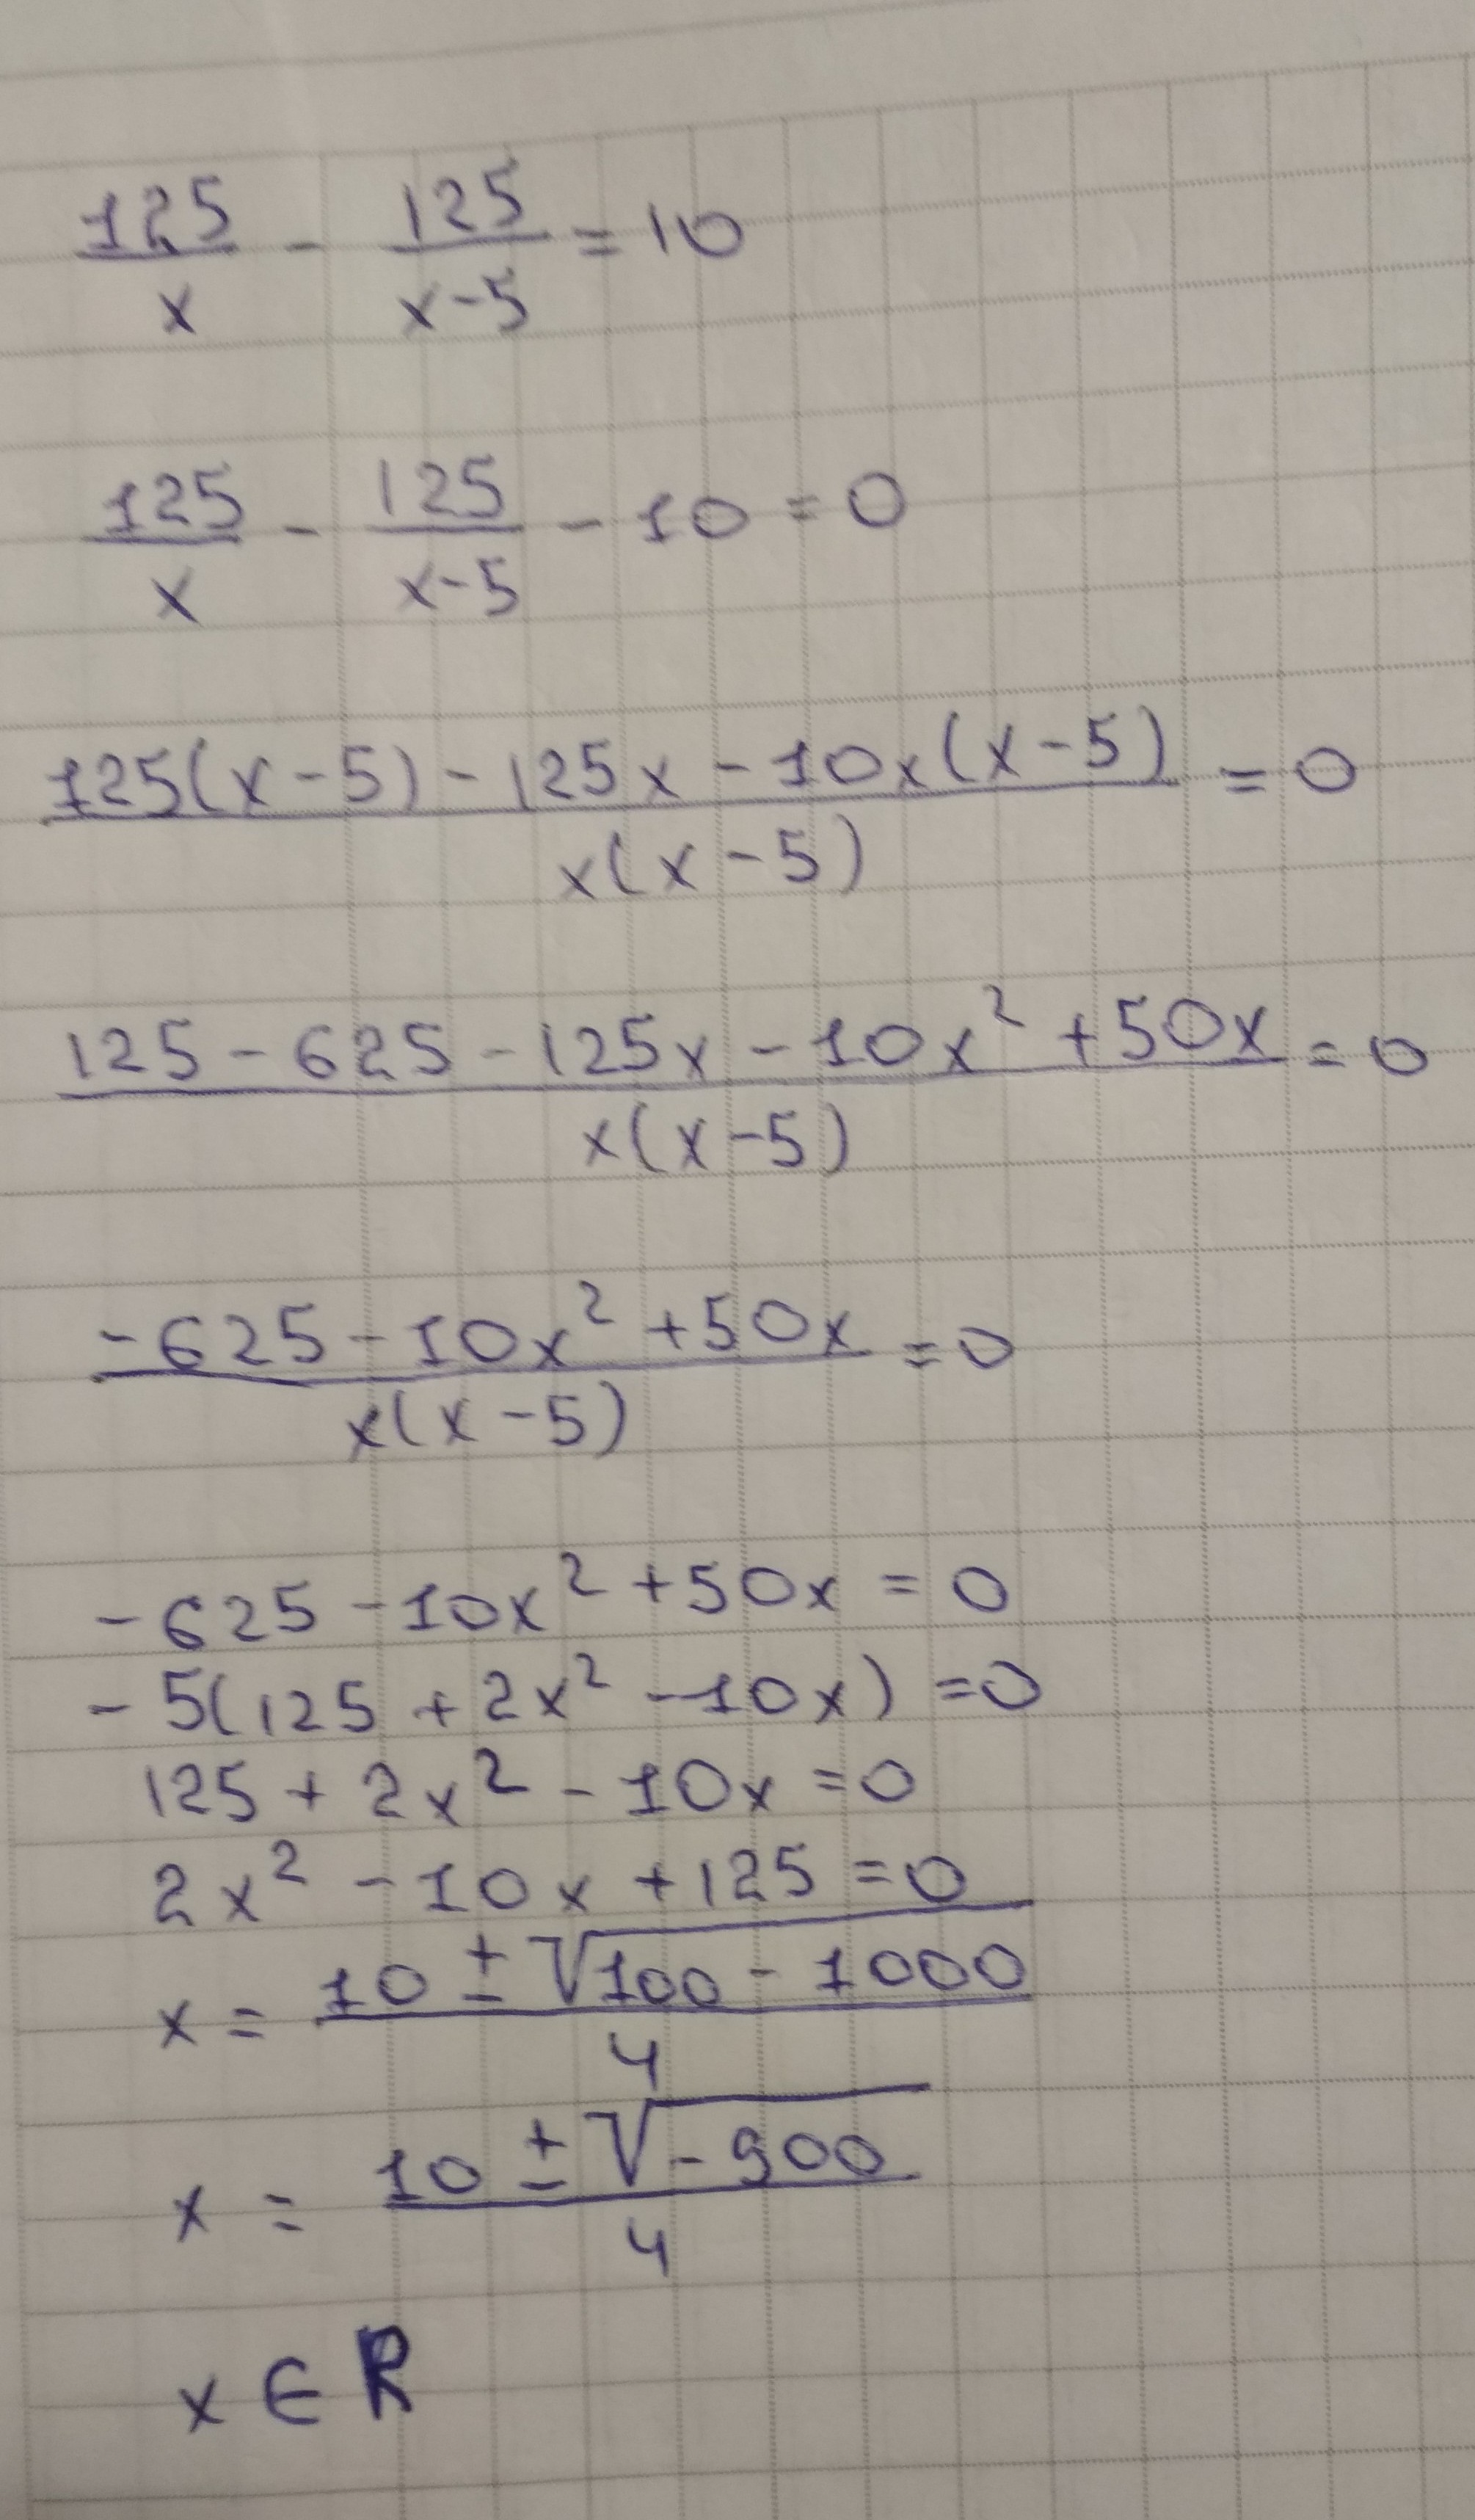 125/x - 125/(x-5) = 10
125/x - 125/(x-5) - 10 = 0
(125(x-5) - 125x - 10x(x-5))/(x(x-5)) = 0
(125 - 625 - 125x - 10x² + 50x)/(x(x-5)) = 0
(-625 - 10x² + 50x)/(x(x-5)) = 0
-625 - 10x² + 50x = 0
-5(125 + 2x² - 10x) = 0
125 + 2x² - 10x = 0
2x² - 10x + 125 = 0
x = (10 ± √(100 - 1000))/4
x = (10 ± √(-900))/4
x ∈ R